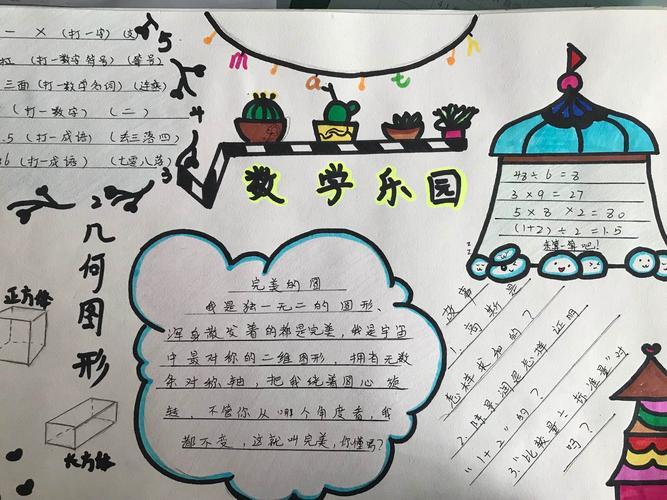 math
一 × (打一字) (支
(打一数学符号) (等号)
三面 (打一数学名词) (连乘)
(打一数字) (二)
.5 (打一成语) (丢三落四)
6 (打一成语) (七零八落)
5
4
3
2
数学乐园
48÷6=8
3×9=27
5×8×2=80
(1+2)÷2=1.5
来算一算吧!
几何图形
正方体
长方体
完美的圆
我是独一无二的圆形、
浑身散发着的都是完美,我是宇宙
中最对称的二维图形,拥有无数
条对称轴,把我绕着圆心旋
转,不管你从哪个角度看,我
都不变,这就叫完美,你懂吗?
故事
1.高斯是
怎样求和的?
2.陈景润是怎样证明
"1+2"的?
3."比较量÷标准量"对
吗?